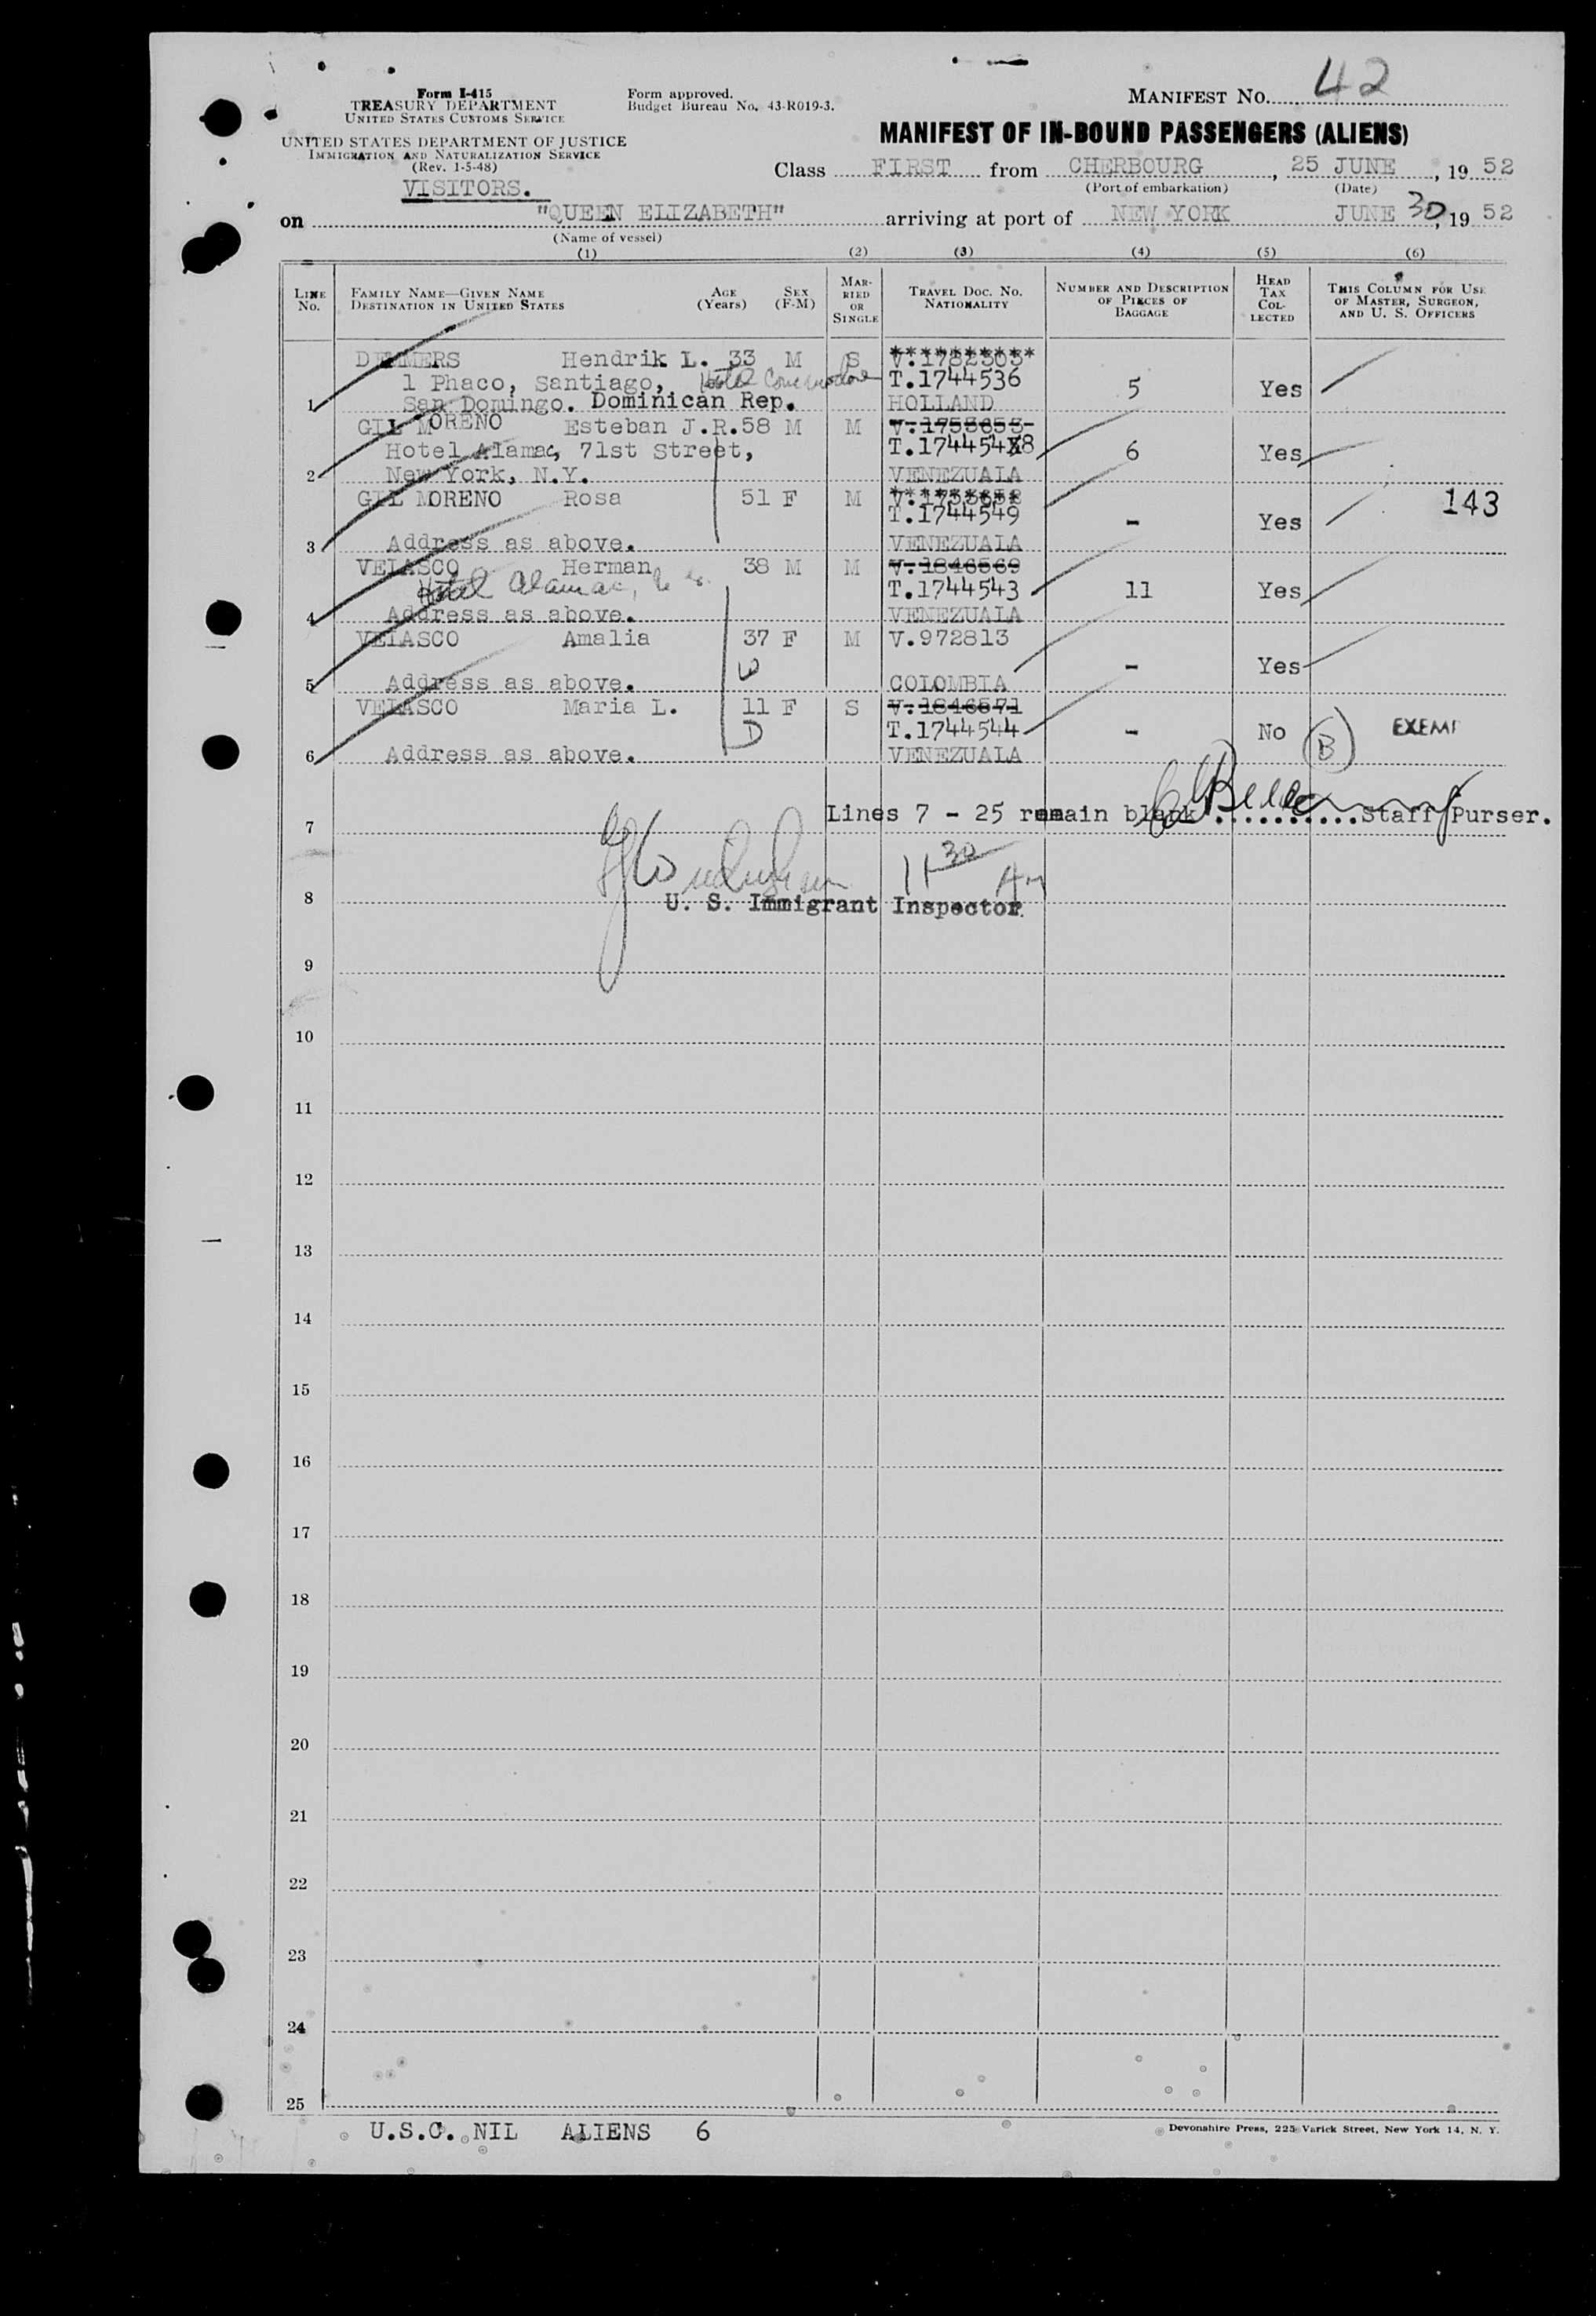 Form I-415
TREASURY DEPARTMENT
UNITED STATES CUSTOMS SERVICE
UNITED STATES DEPARTMENT OF JUSTICE
IMMIGRATION AND NATURALIZATION SERVICE
(Rev. 1-5-48)
VISITORS.
Form approved.
Budget Bureau No. 43-R019-3.
MANIFEST NO. 42
MANIFEST OF IN-BOUND PASSENGERS (ALIENS)
Class FIRST from CHERBOURG, 25 JUNE, 19 52
(Port of embarkation) (Date)
on "QUEEN ELIZABETH" arriving at port of NEW YORK JUNE 30, 19 52
(Name of vessel)
(1) (2) (3) (4) (5) (6)
LINE No. FAMILY NAME—GIVEN NAME DESTINATION IN UNITED STATES AGE (Years) SEX (F-M) MARRIED OR SINGLE TRAVEL DOC. NO. NATIONALITY NUMBER AND DESCRIPTION OF PIECES OF BAGGAGE HEAD TAX COLLECTED THIS COLUMN FOR USE OF MASTER, SURGEON, AND U. S. OFFICERS
DEMMERS Hendrik L. 33 M S V.1782303
1 Phaco, Santiago, Hotel Commodore T.1744536 5 Yes
1 San Domingo. Dominican Rep. HOLLAND
GIL MORENO Esteban J.R. 58 M M V.1753653
Hotel Alamac, 71st Street, T.1744548 6 Yes
2 New York, N.Y. VENEZUALA
GIL MORENO Rosa 51 F M 143
T.1744549 - Yes
3 Address as above. VENEZUALA
VELASCO Herman 38 M M V.1846569
Hotel Alamac, T.1744543 11 Yes
4 Address as above. VENEZUALA
VELASCO Amalia 37 F M V.972813
W - Yes
5 Address as above. COLOMBIA
VELASCO Maria L. 11 F S V.1846571
D T.1744544 - No B EXEMPT
6 Address as above. VENEZUALA
7 Lines 7 - 25 remain blank ..........Staff Purser.
11 30 AM
8 U. S. Immigrant Inspector
9
10
11
12
13
14
15
16
17
18
19
20
21
22
23
24
25
U.S.C. NIL ALIENS 6
Devonshire Press, 225 Varick Street, New York 14, N. Y.